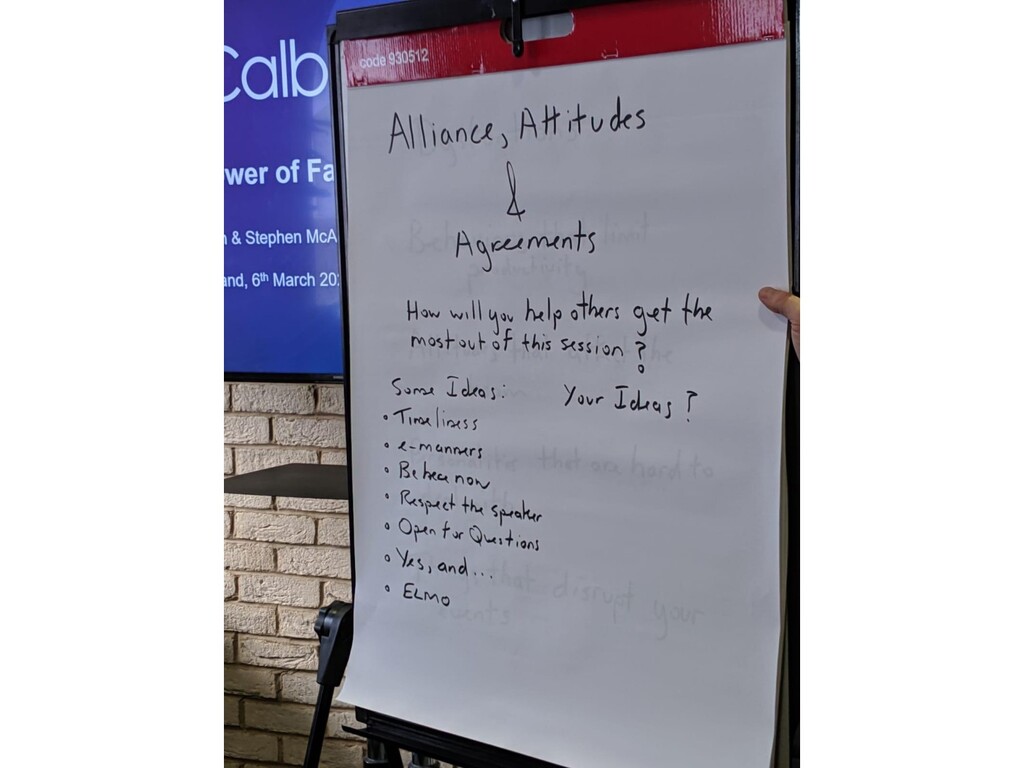 Calb
wer of Fa
& Stephen McA
and, 6th March 20
code 930512
Alliance, Attitudes
&
Agreements
How will you help others get the
most out of this session?
Some Ideas:
Your Ideas?
• Timeliness
• e-manners
• Be here now
• Respect the speaker
• Open for Questions
• Yes, and...
• ELMO
that are hard to
that disrupt your
events